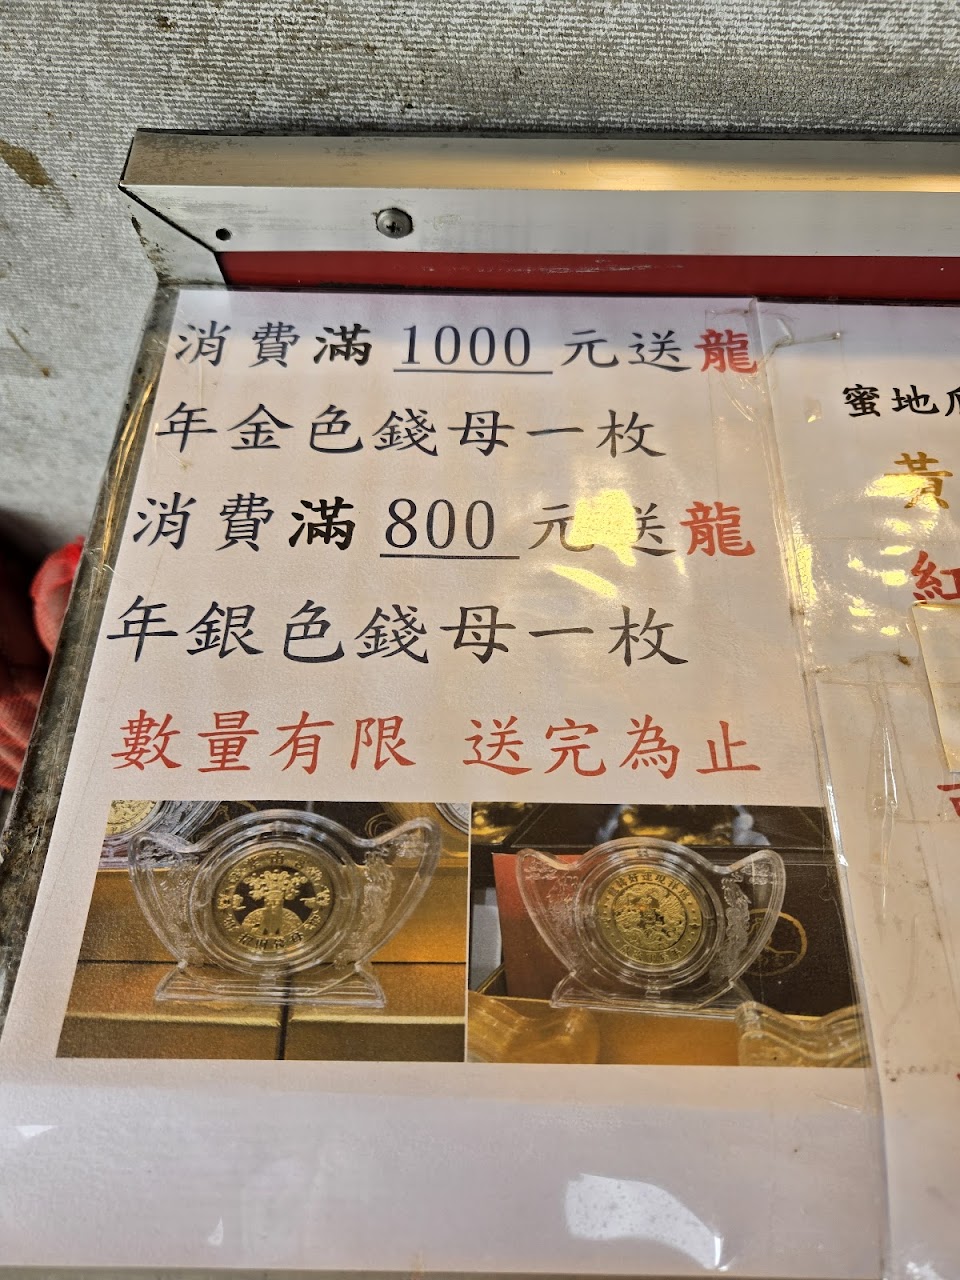 消費滿 1000 元送龍
年金色錢母一枚
消費滿 800 元送龍
年銀色錢母一枚
數量有限 送完為止
蜜地瓜
黃
紅